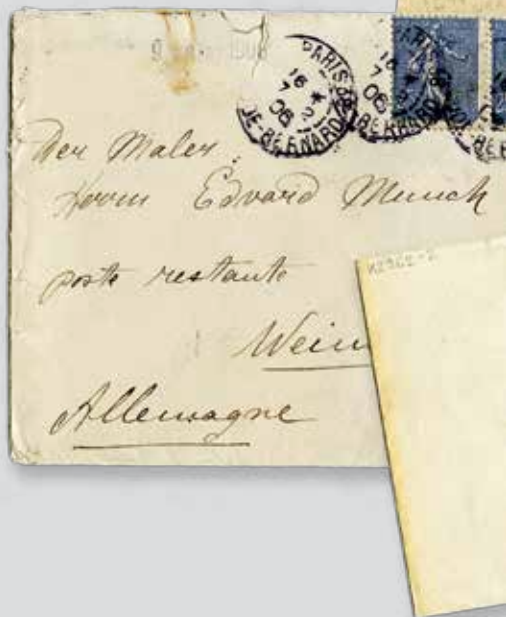 PARIS
16
7
06
BERNARD
16
7
06
BERNARD
der Maler,
Herrn Edvard Munch
poste restante
Wein
Allemagne